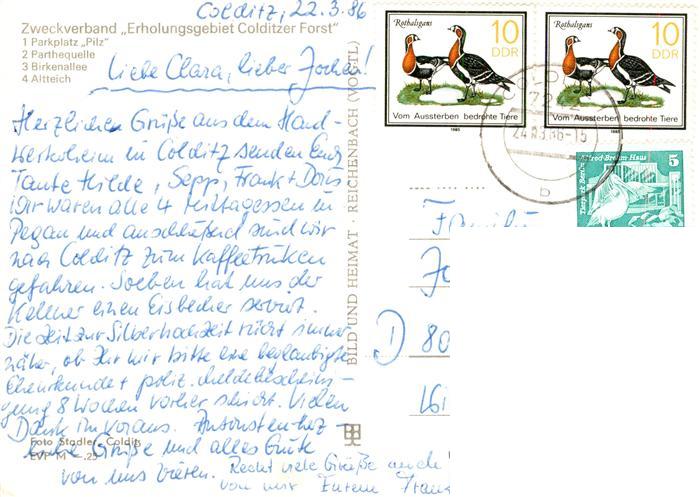 Colditz, 22.3.86
Zweckverband „Erholungsgebiet Colditzer Forst"
1 Parkplatz „Pilz"
2 Parthequelle
3 Birkenallee
4 Altteich
Liebe Clara, lieber Jochen!
Herzlichen Grüße aus dem Hand-
werkerheim in Colditz senden Euch
Tante Hilde, Sepp, Frank + Doris
Wir waren alle 4 Mittagessen in
Pegau und anschließend sind wir
nach Colditz zum Kaffeetrinken
gefahren. Soeben hat uns der
Kellner einen Eisbecher serviert.
Die Zeit zur Silberhochzeit rückt immer
näher, ob Ihr mir bitte eine beglaubigte
Eheurkunde + poliz. Meldebeschein-
gung 8 Wochen vorher schickt. Vielen
Dank im voraus. Ansonsten herz-
liche Grüße und alles Gute
von uns vieren. Recht viele Grüße auch
von mir Eurem Frank
Foto Stadler, Colditz
EVP M -.25
BILD UND HEIMAT · REICHENBACH (VOGTL)
Rothalsgans
10
DDR
Vom Aussterben bedrohte Tiere
1985
Rothalsgans
10
DDR
Vom Aussterben bedrohte Tiere
1985
24.03.86-15
b
Tierpark Berlin Alfred-Brehm-Haus
5
Familie
Jo
D 80